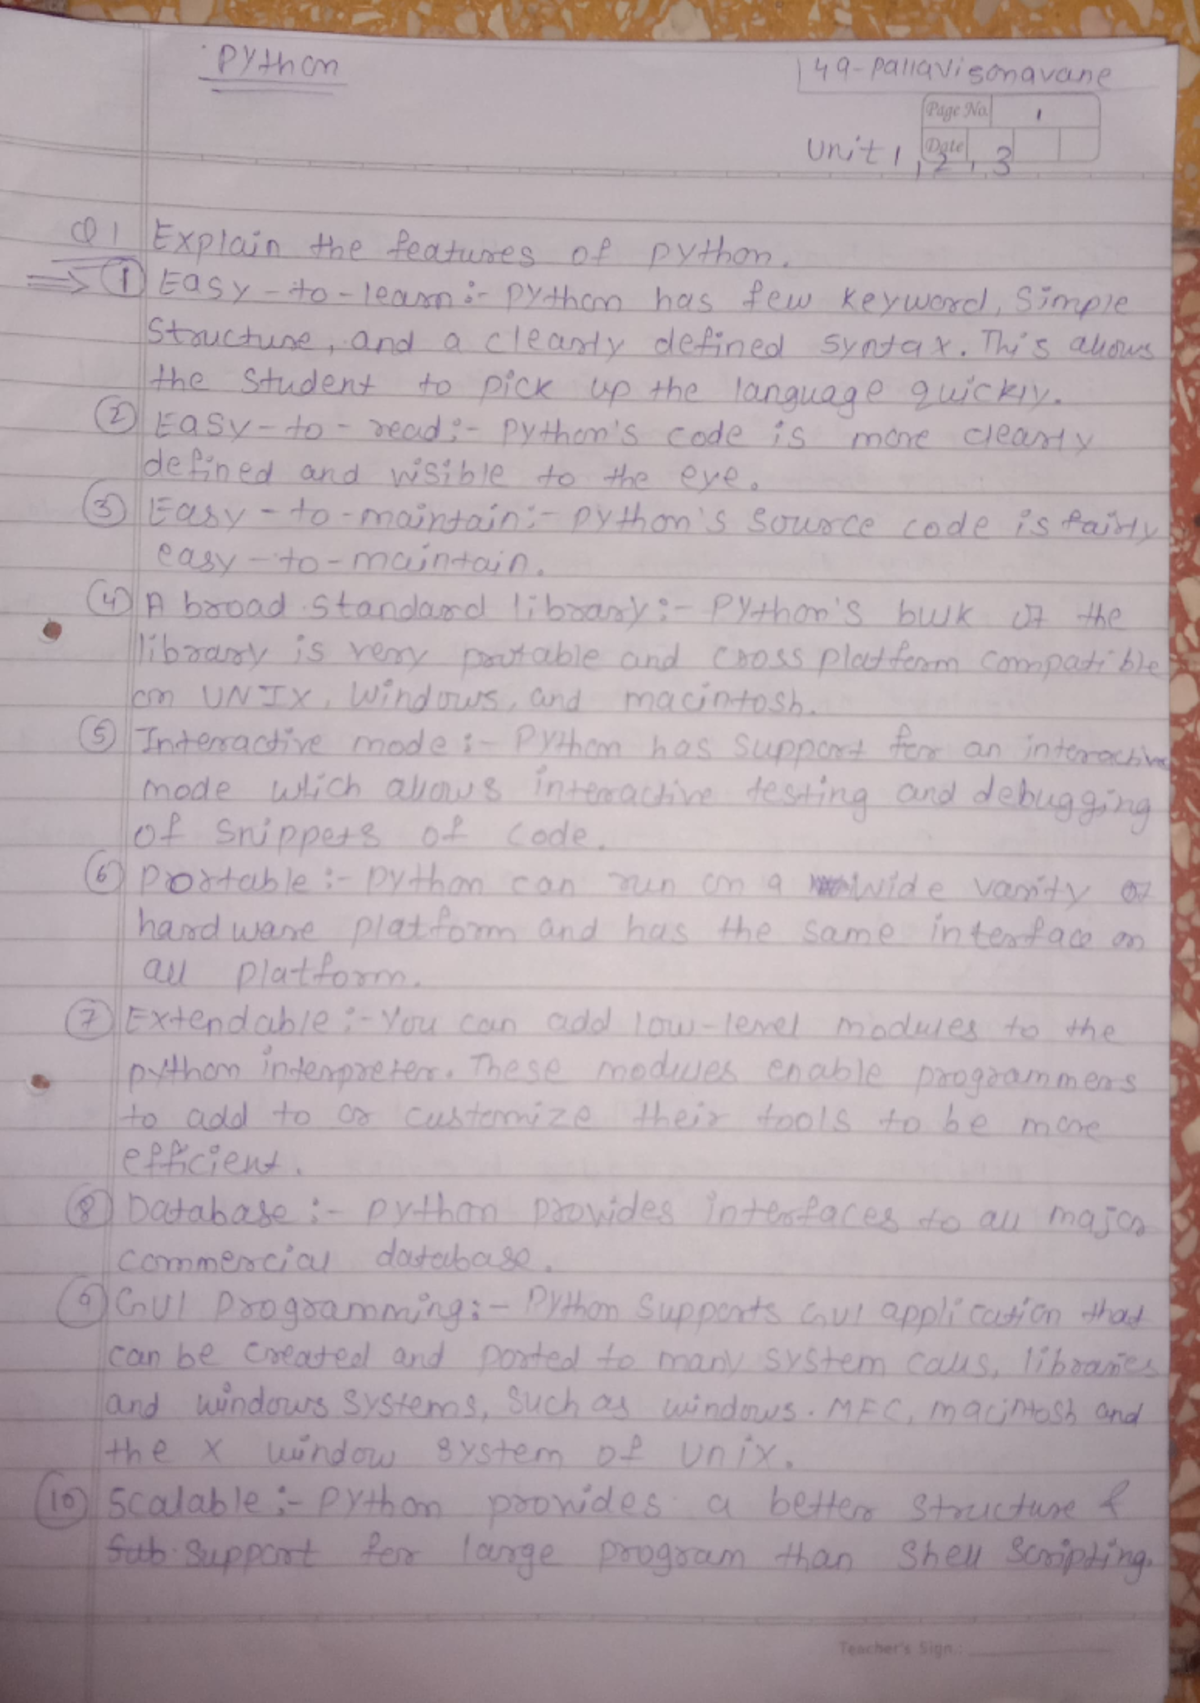 Python
49-Pallavi sonavane
Page No. 1
Unit 1, 2, 3
Date
Q1 Explain the features of python.
⇒ ① Easy-to-learn:- Python has few keyword, Simple
Structure, and a clearly defined syntax. This allows
the Student to pick up the language quickly.
② Easy-to-read:- Python's code is more clearly
defined and visible to the eye.
③ Easy-to-maintain:- Python's Source code is fairly
easy-to-maintain.
④ A broad standard library:- Python's bulk of the
library is very portable and cross platform compatible
on UNIX, Windows, and macintosh.
⑤ Interactive mode:- Python has support for an interactive
mode which allows interactive testing and debugging
of snippets of code.
⑥ Portable:- Python can run on a wide varity of
hardware platform and has the same interface on
all platform.
⑦ Extendable:- You can add low-level modules to the
python interpreter. These modules enable programmers
to add to or customize their tools to be more
efficient.
⑧ Database:- Python provides interfaces to all major
commercial database.
⑨ GUI Programming:- Python Supports GUI application that
can be created and ported to many system calls, libraries
and windows systems, such as windows. MFC, macintosh and
the X window system of Unix.
⑩ Scalable:- Python provides a better structure &
Sub Support for large program than Shell Scripting.
Teacher's Sign.: